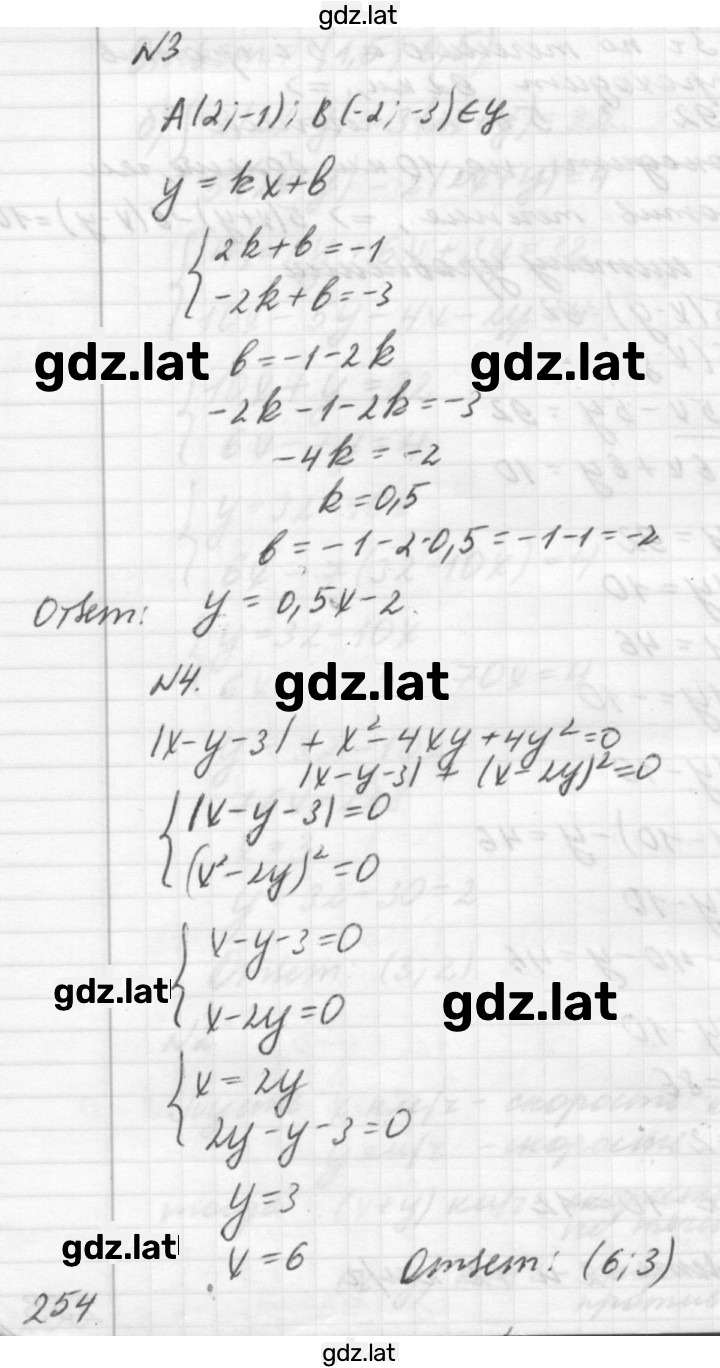 gdz.lat
№3
A(2;-1); B(-2;-3)∈y
y=kx+b
2k+b=-1
-2k+b=-3
gdz.lat b=-1-2k gdz.lat
-2k-1-2k=-3
-4k=-2
k=0,5
b=-1-2·0,5=-1-1=-2
Ответ: y=0,5x-2.
№4. gdz.lat
|x-y-3|+x²-4xy+4y²=0
|x-y-3|+(x-2y)²=0
|x-y-3|=0
(x-2y)²=0
x-y-3=0
gdz.lat gdz.lat
x-2y=0
x=2y
2y-y-3=0
y=3
gdz.lat x=6 Ответ: (6;3)
254
gdz.lat